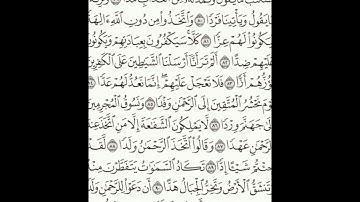 مَا يَقُولُ وَيَأْتِينَا فَرْدًا ٨٠ وَٱتَّخَذُوا۟ مِن دُونِ ٱللَّهِ ءَالِهَةً
لِّيَكُونُوا۟ لَهُمْ عِزًّا ٨١ كَلَّا سَيَكْفُرُونَ بِعِبَادَتِهِمْ وَيَكُونُونَ
عَلَيْهِمْ ضِدًّا ٨٢ أَلَمْ تَرَ أَنَّآ أَرْسَلْنَا ٱلشَّيَٰطِينَ عَلَى ٱلْكَٰفِرِينَ
تَؤُزُّهُمْ أَزًّا ٨٣ فَلَا تَعْجَلْ عَلَيْهِمْ إِنَّمَا نَعُدُّ لَهُمْ عَدًّا
يَوْمَ نَحْشُرُ ٱلْمُتَّقِينَ إِلَى ٱلرَّحْمَٰنِ وَفْدًا ٨٥ وَنَسُوقُ ٱلْمُجْرِمِينَ
إِلَىٰ جَهَنَّمَ وِرْدًا ٨٦ لَّا يَمْلِكُونَ ٱلشَّفَٰعَةَ إِلَّا مَنِ ٱتَّخَذَ عِندَ
ٱلرَّحْمَٰنِ عَهْدًا ٨٧ وَقَالُوا۟ ٱتَّخَذَ ٱلرَّحْمَٰنُ وَلَدًا ٨٨ لَّقَدْ
جِئْتُمْ شَيْـًٔا إِدًّا ٨٩ تَكَادُ ٱلسَّمَٰوَٰتُ يَتَفَطَّرْنَ مِنْهُ
وَتَنشَقُّ ٱلْأَرْضُ وَتَخِرُّ ٱلْجِبَالُ هَدًّا ٩٠ أَن دَعَوْا۟ لِلرَّحْمَٰنِ وَلَدًا